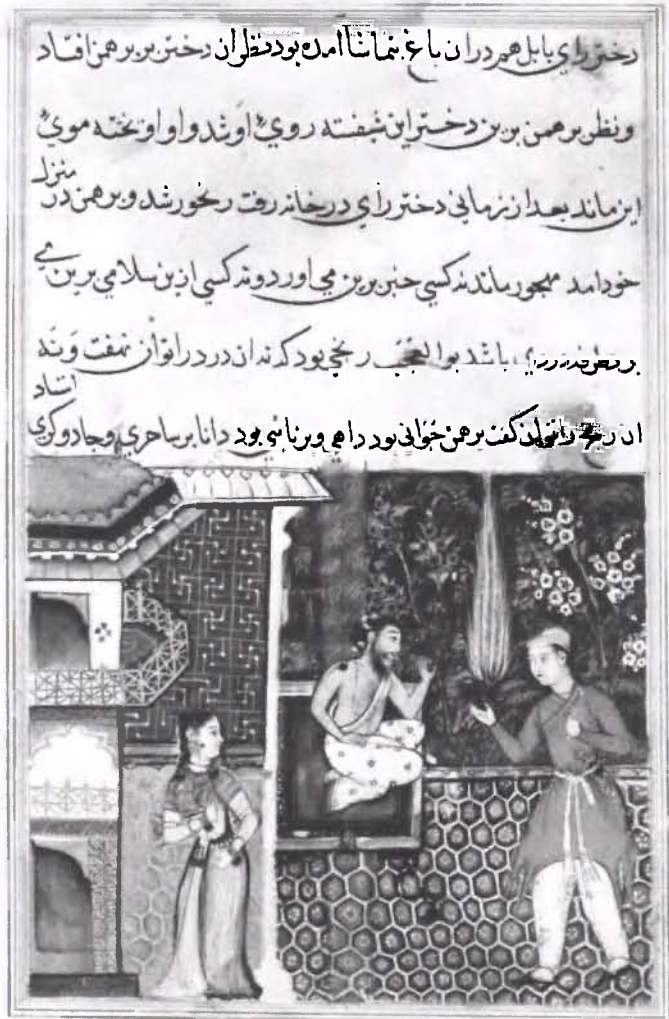 دختر رای بابل هم دران باغ بتماشا آمده بود نظر ان دختر بر برهمن افتاد
و نظر برهمن برین دختر این شیفته روی او شد و او اوتخته موی
این ماند بعد از زمانی دختر رای در خانه رفت رنجور شد و برهمن در منزل
خود امد مهجور ماند نه کسی خبر برین می اورد و نه کسی ازین سلامی برین می
باشد بوالعجب رنجی بود که نه ان درد را توان نهفت و نه
ان رنج را توان گفت برهمن خوانی بود داهی و برنائی بود دانا بر ساحری و جادوگری استاد